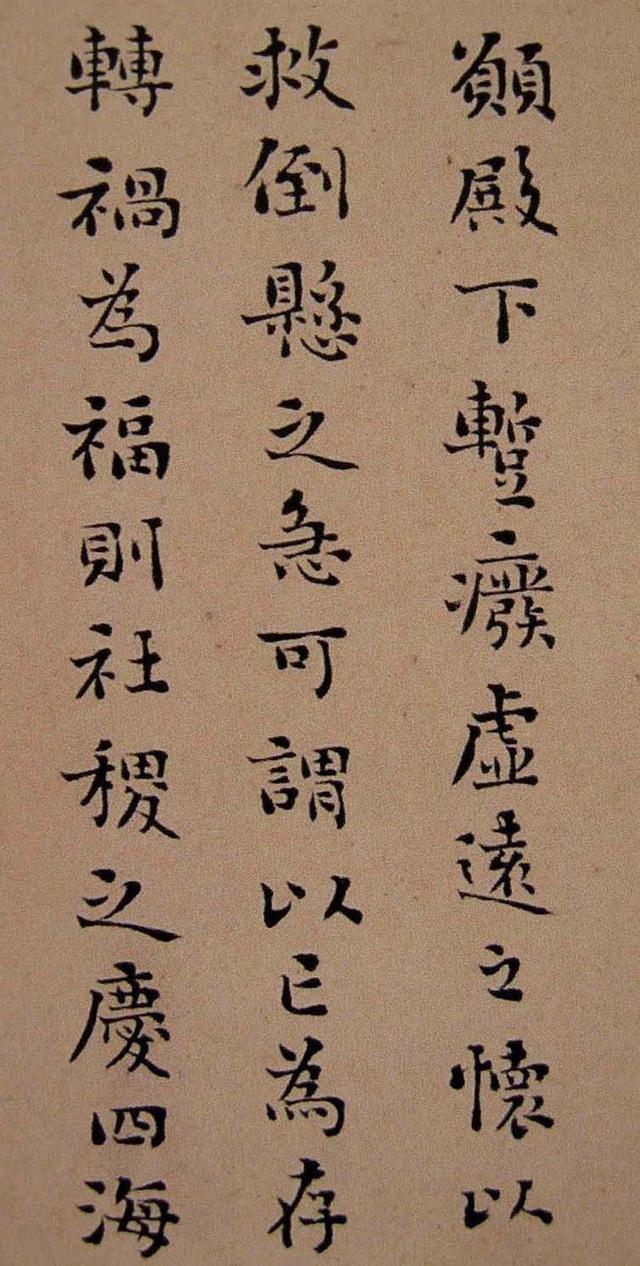 願殿下蹔廢虛遠之懷以
救倒懸之急可謂以亡為存
轉禍為福則社稷之慶四海